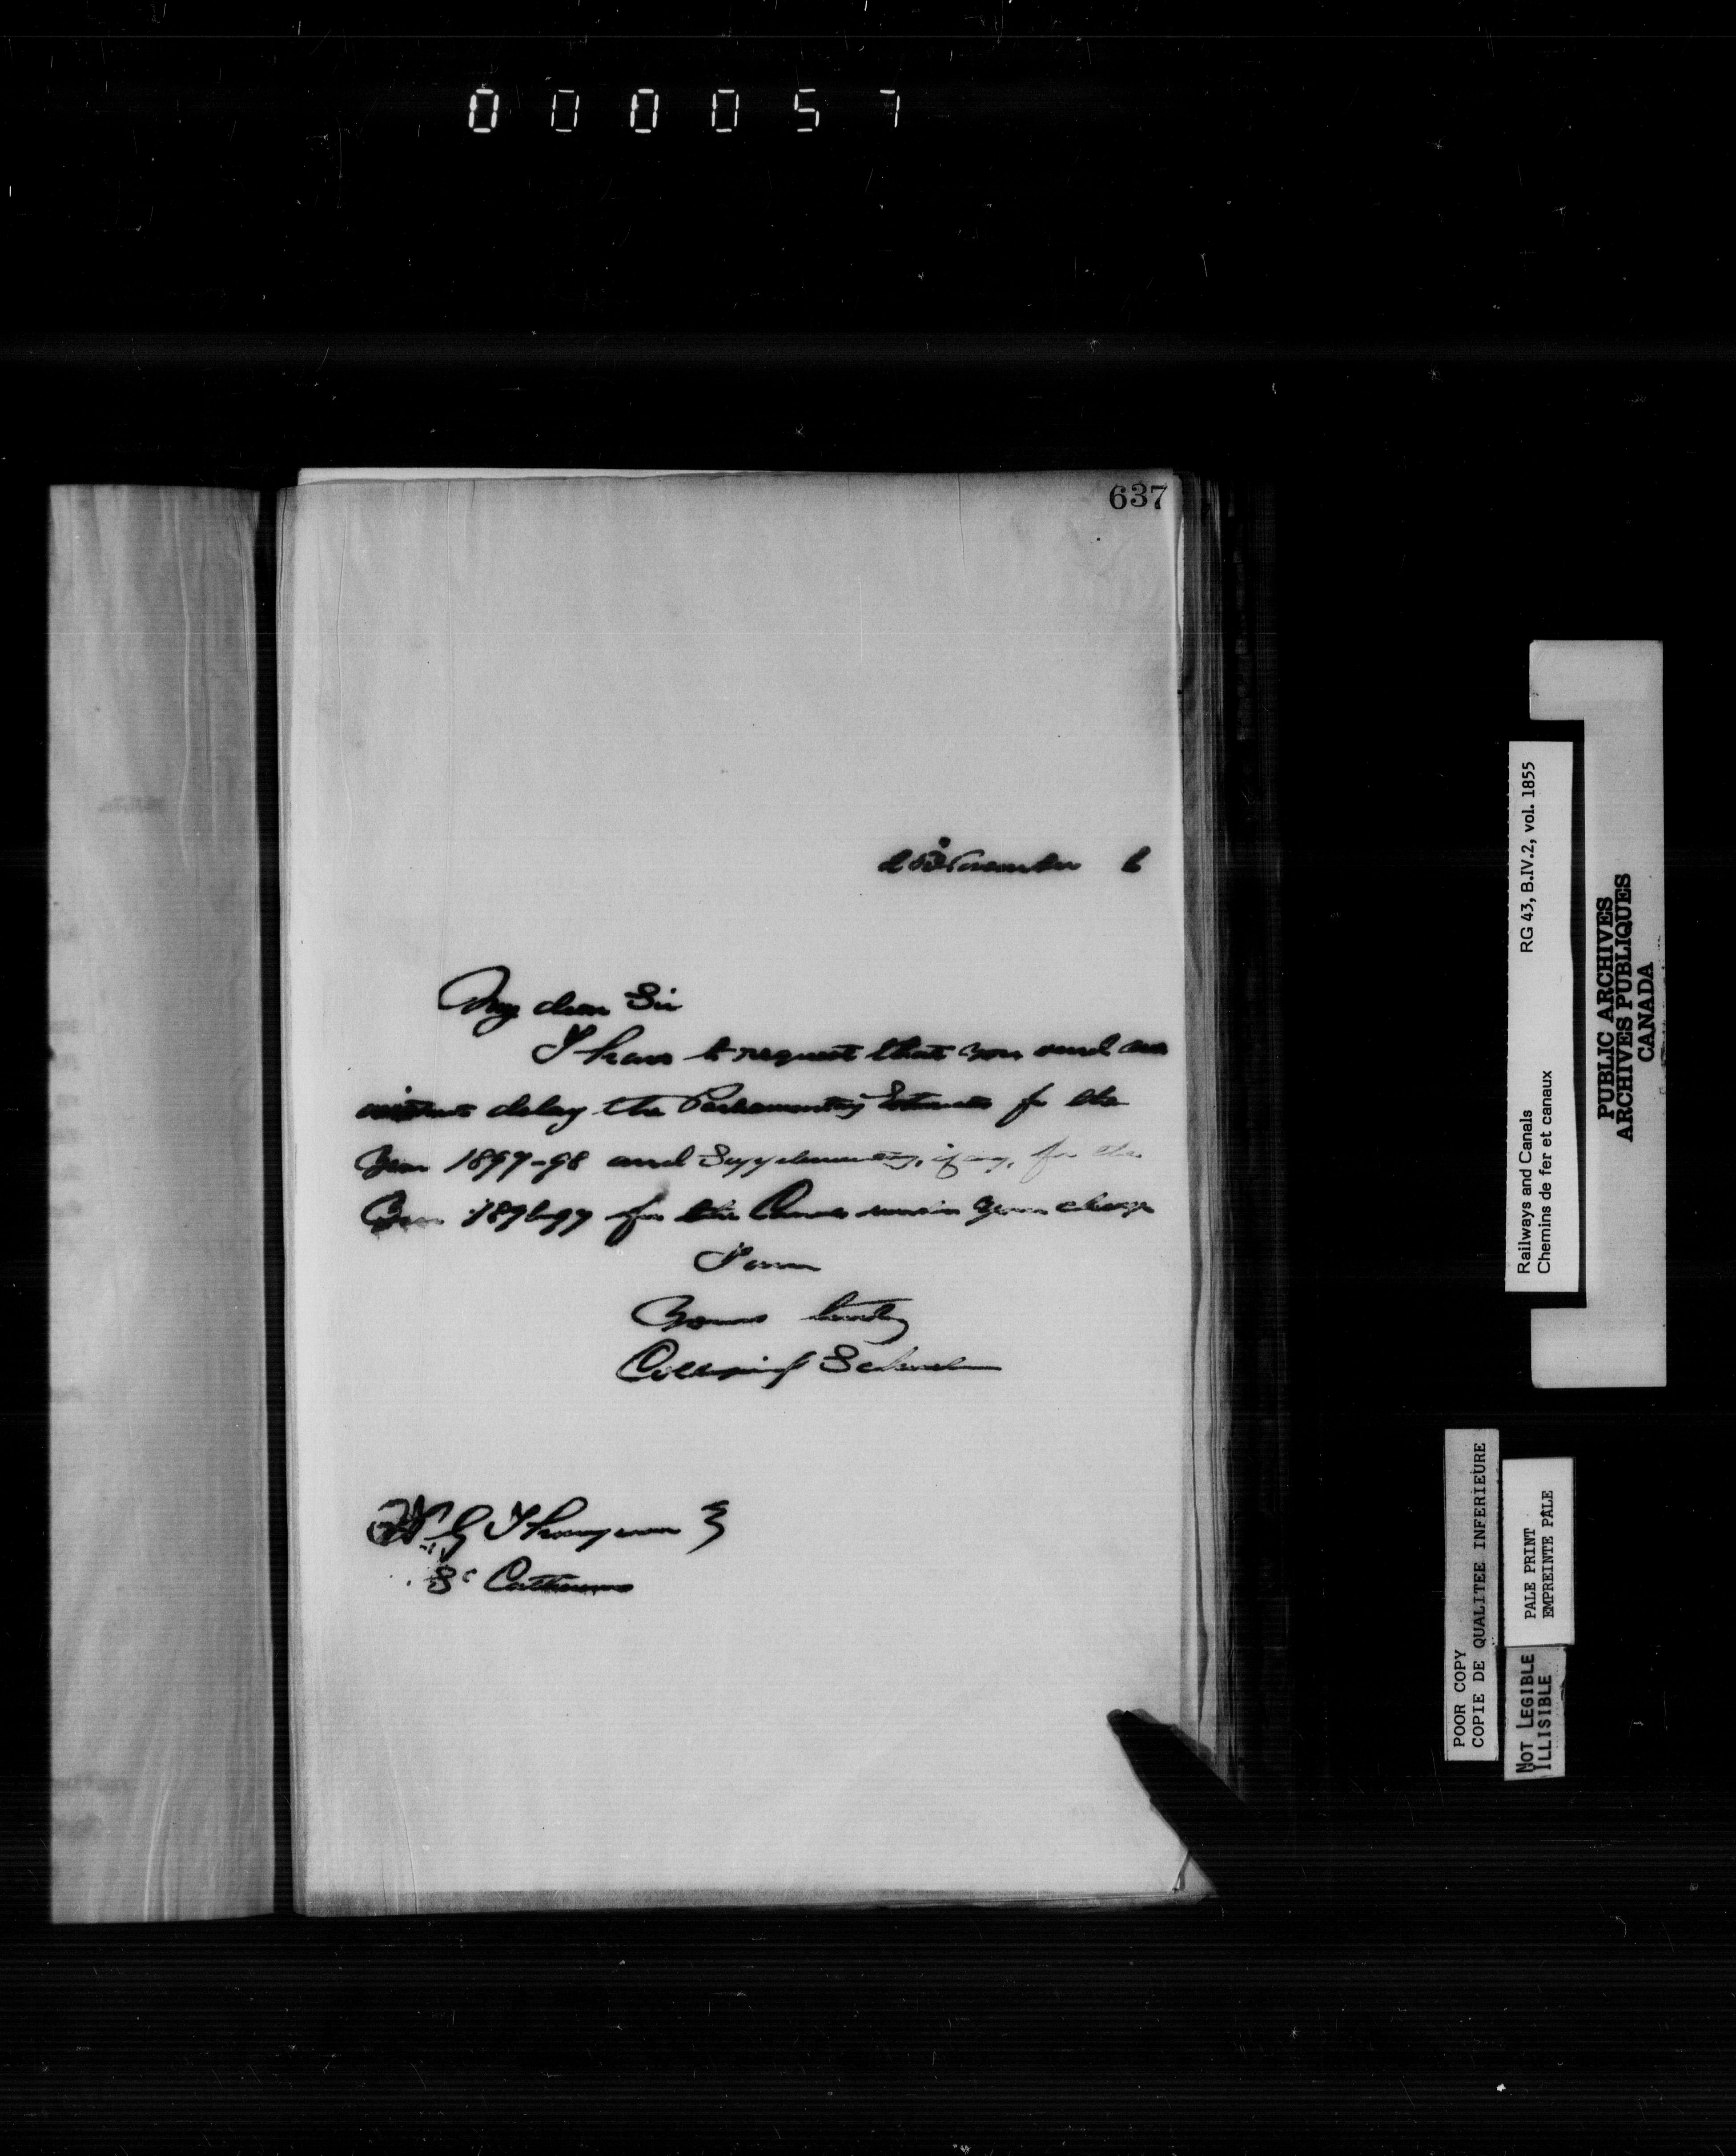 000057
637
25 November 6
My dear Sir
I have to request that you send me
without delay the Parliamentary Estimates for the
Year 1897-98 and Supplementary, if any, for the
Year 1896-97 for the Canals under your charge
I am
Yours truly
Collingwood Schreiber
W G Thompson
St Catharines
Railways and Canals RG 43, B.IV.2, vol. 1855
Chemins de fer et canaux
PUBLIC ARCHIVES
ARCHIVES PUBLIQUES
CANADA
POOR COPY
COPIE DE QUALITEE INFERIEURE
PALE PRINT
EMPREINTE PALE
NOT LEGIBLE
ILLISIBLE